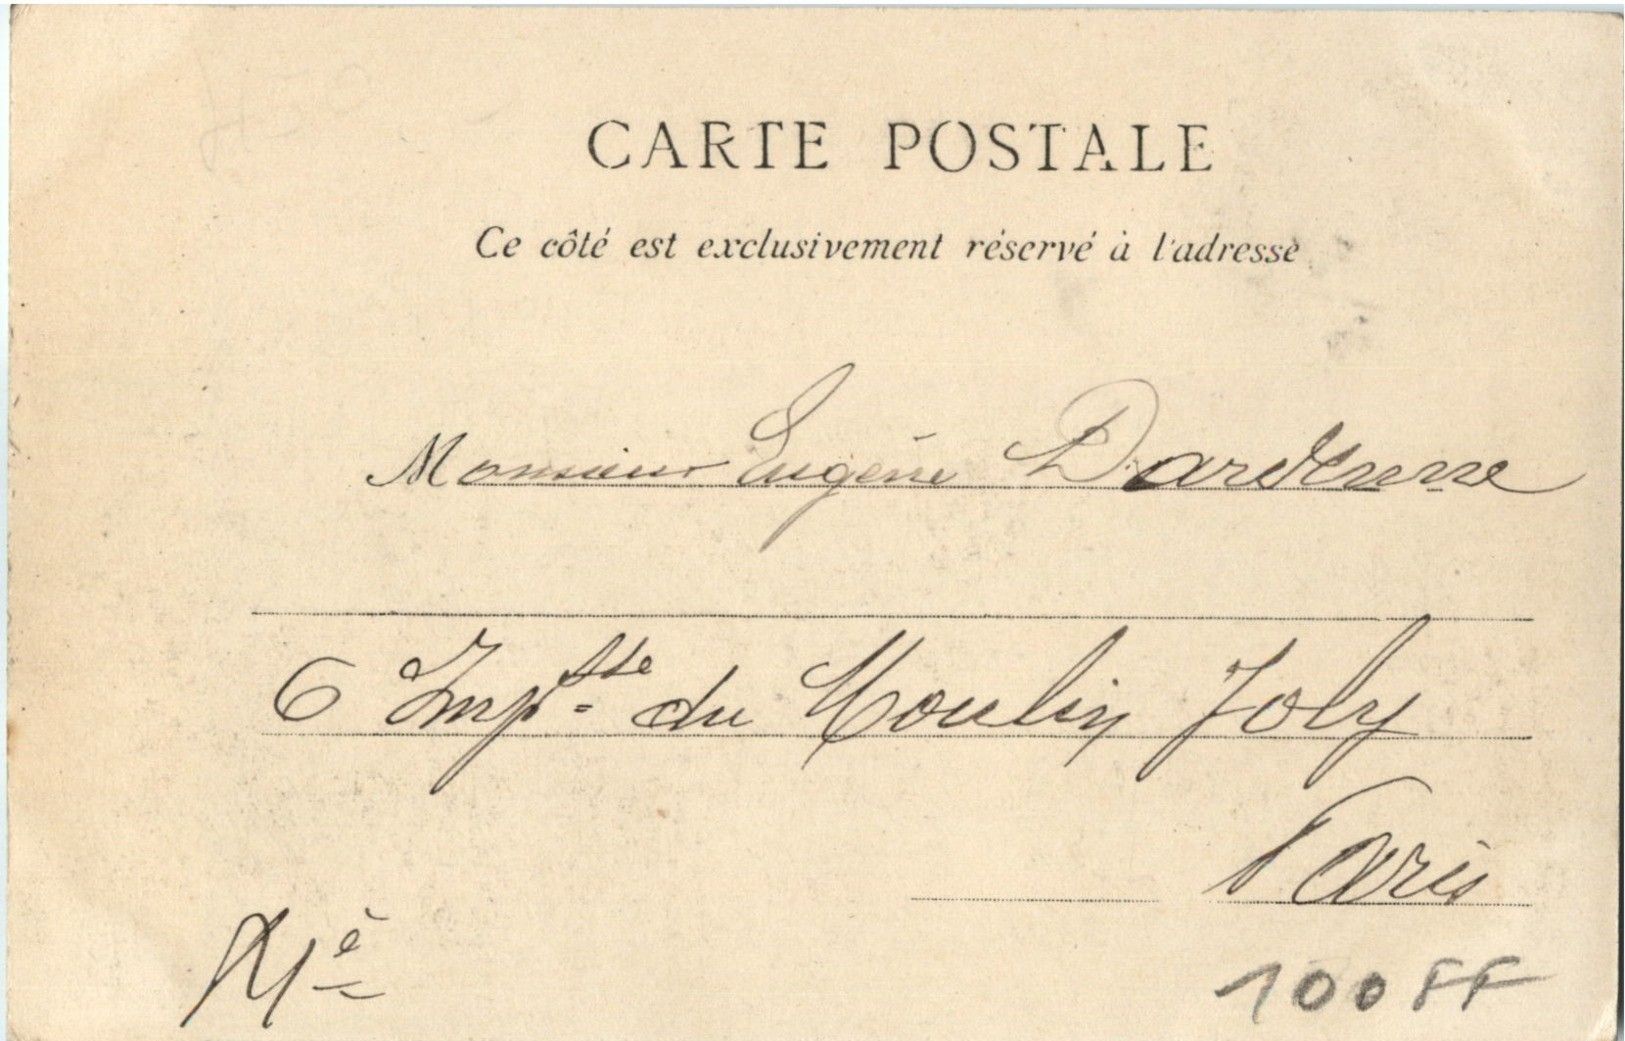 CARTE POSTALE
Ce côté est exclusivement réservé à l'adresse
Monsieur Eugène Dardenne
6 Impsse du Moulin Joly
Paris
100 FF